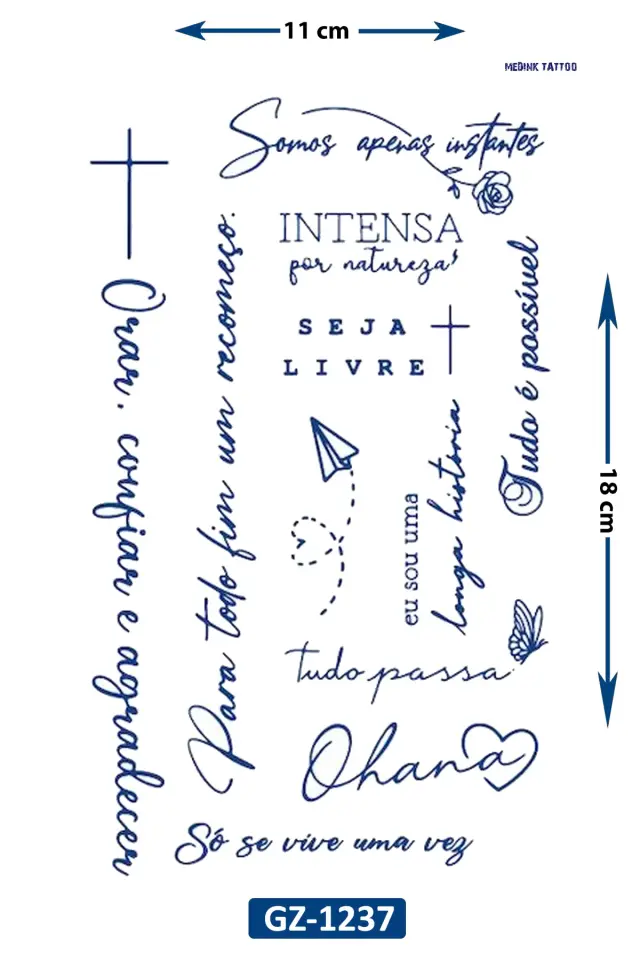 11 cm
MEDINK TATTOO
Somos apenas instantes
INTENSA
por natureza
SEJA
LIVRE
Tudo é possível
Orar, confiar e agradecer
Para todo fim um recomeço.
eu sou uma
longa história
18 cm
tudo passa
Ohana
Só se vive uma vez
GZ-1237